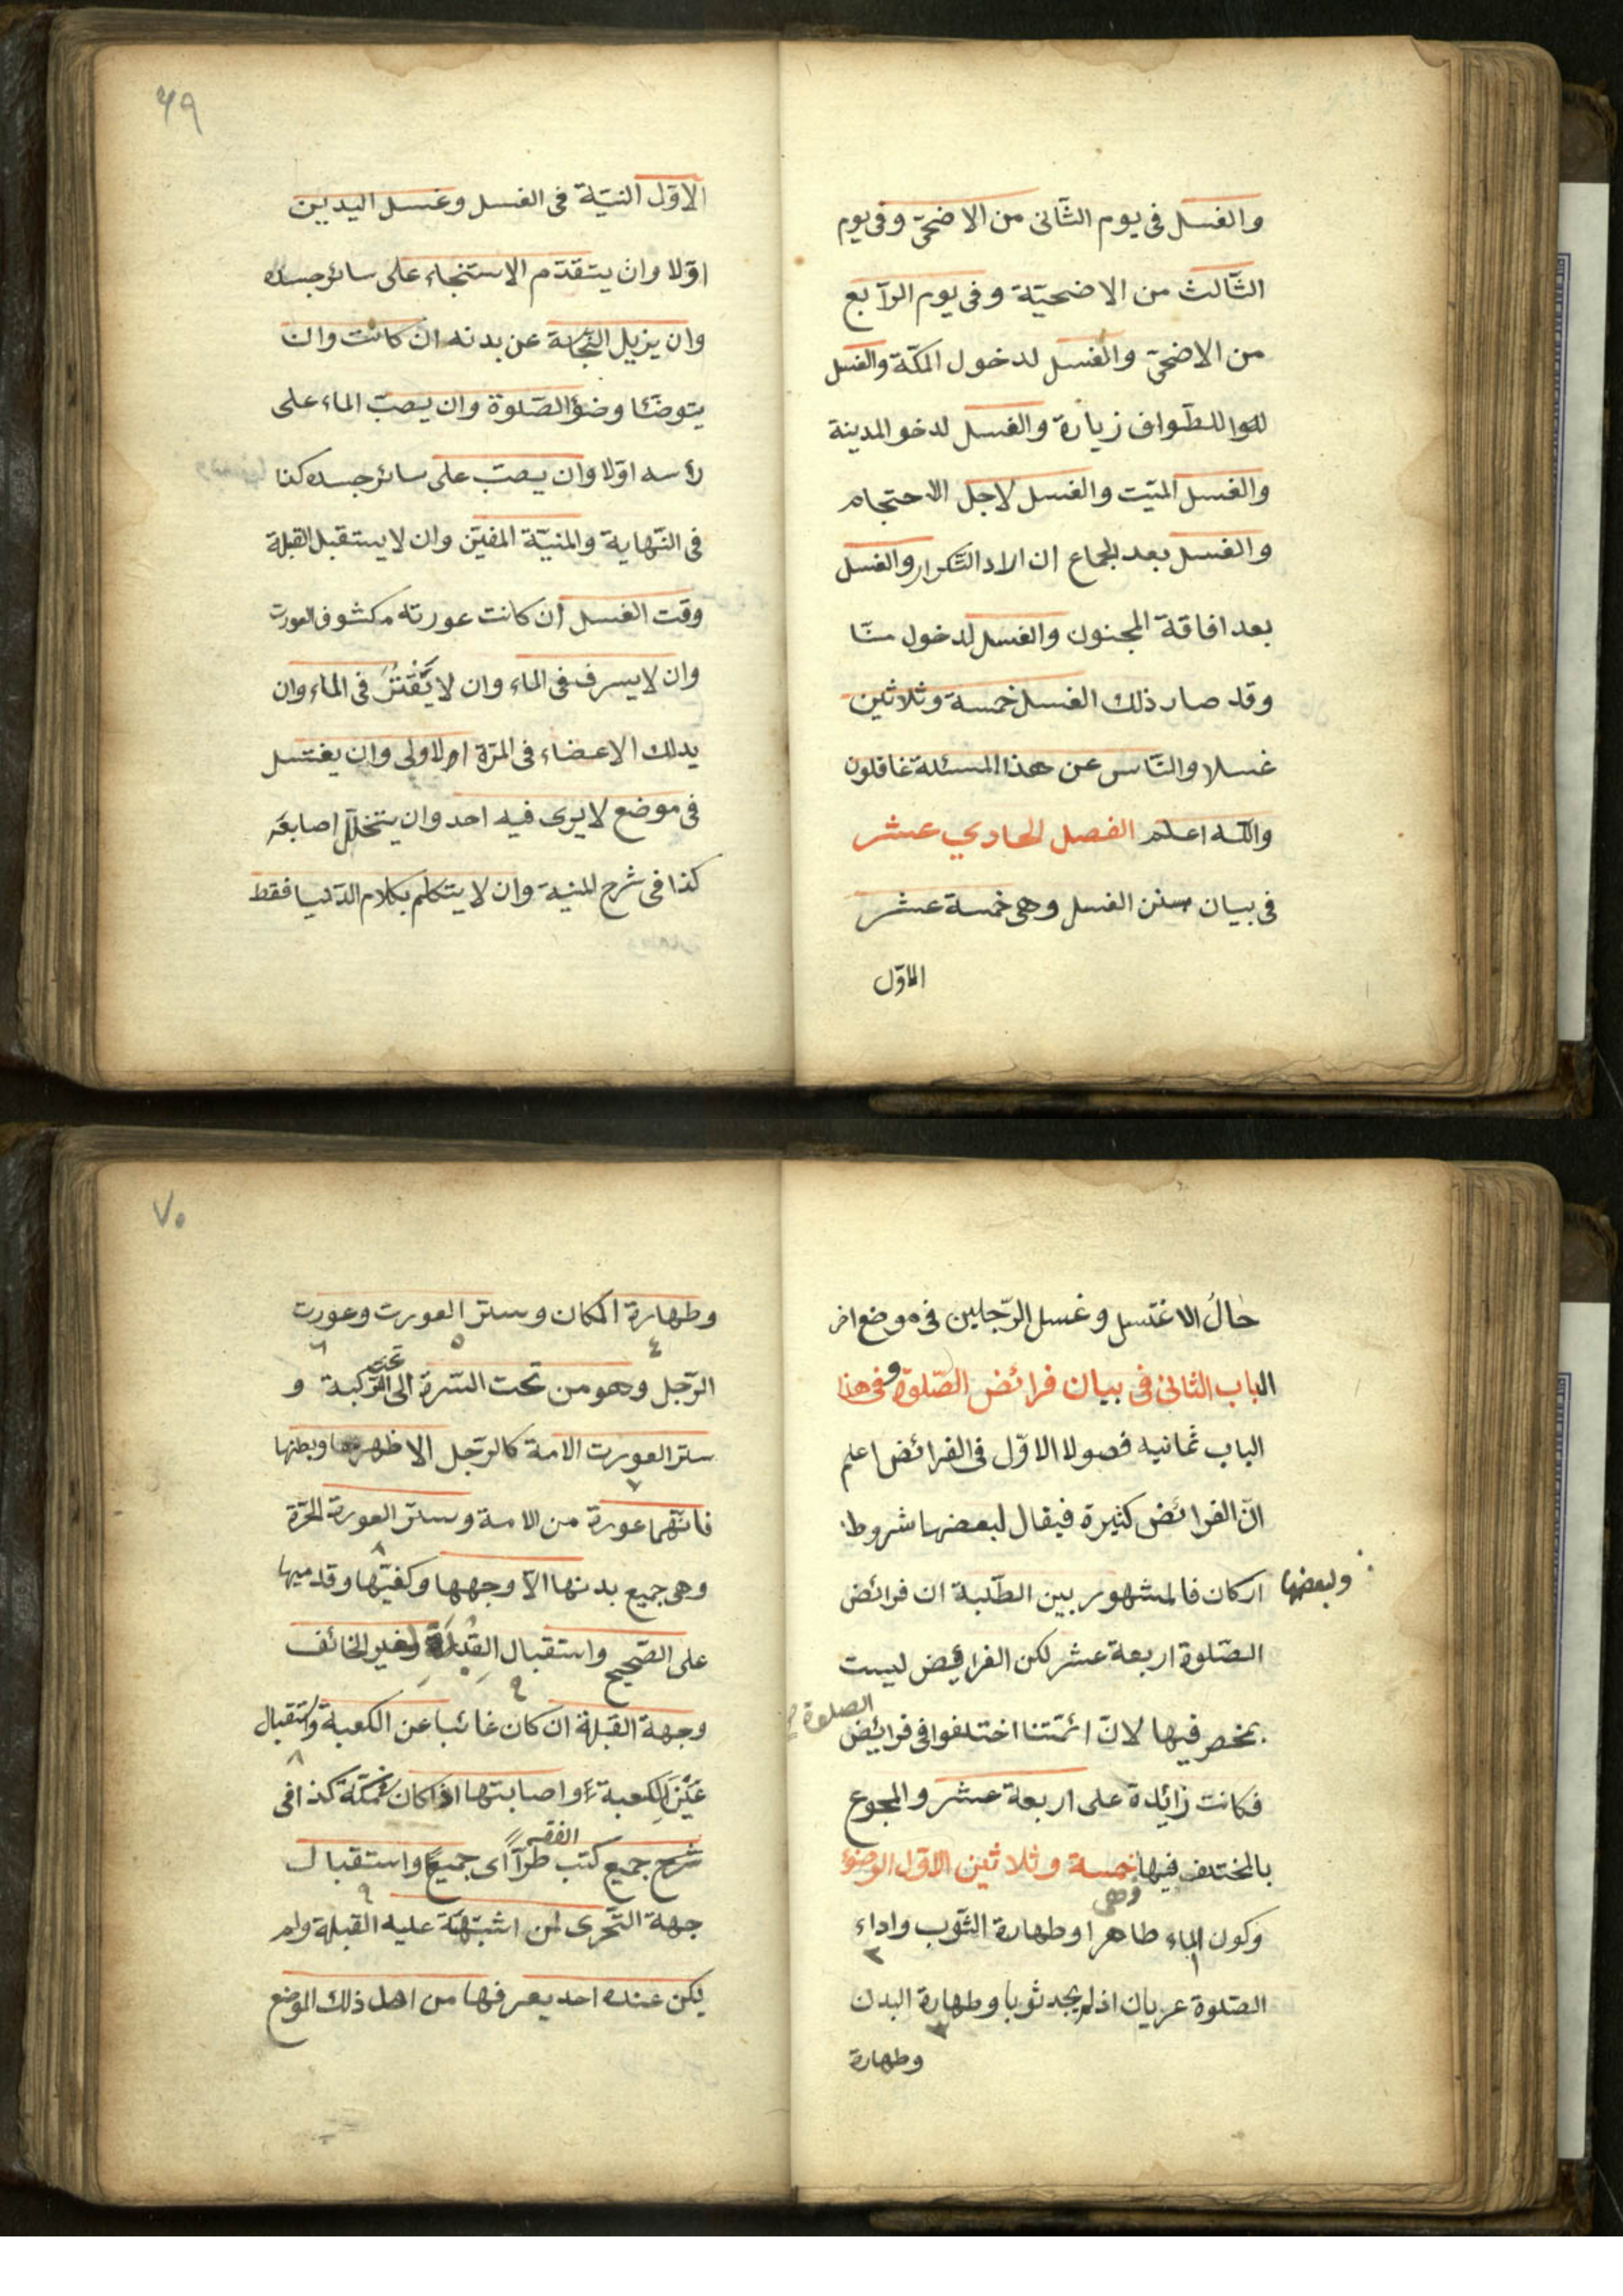 والغسل فى يوم الثّانى من الاضحىّ وفى يوم
الثّالث من الاضحيّة وفى يوم الرّابع
من الاضحىّ والغسل لدخول المكّة والغسل
للطّواف زيارة والغسل لدخو المدينة
والغسل الميّت والغسل لاجل الاحتجام
والغسل بعد الجماع ان اراد التّكرار والغسل
بعد افاقة المجنون والغسل لدخول منّا
وقد صار ذلك الغسل خمسة وثلاثين
غسلا والنّاس عن هذا المسئلة غافلون
واللّه اعلم الفصل الحادي عشر
فى بيان سنن الغسل وهى خمسة عشر
الاوّل
٦٩
الاوّل النيّة فى الغسل وغسل اليدين
اوّلا وان يتقدّم الاستنجاء على سائر جسده
وان يزيل النّجاسة عن بدنه ان كانت وان
يتوضّئا وضؤ الصّلوة وان يصبّ الماء على
رأسه اوّلا وان يصبّ على سائر جسده كذا
فى النّهاية والمنيّة المفتىن وان لا يستقبل القبلة
وقت الغسل ان كانت عورته مكشوف العورت
وان لا يسرف فى الماء وان لا يَقْتُرُ فى الماء وان
يدلك الاعضاء فى المرّة الاولى وان يغتسل
فى موضع لا يرى فيه احد وان يتخلّل اصابعه
كذا فى شرح المنية وان لا يتكلّم بكلام الدّنيا فقط
حالُ الاغتسل وغسل الرّجلين فى موضع اخر
الباب الثانى فى بيان فرائض الصّلوة وفى هذا
الباب ثمانيه فصولا الاوّل فى الفرائض اعلم
انّ الفرائض كثيرة فيقال لبعضها شروط
ولبعضها اركان فالمشهور بين الطّلبة ان فرائض
الصّلوة اربعة عشر لكن الفرائض ليست
بمخصر فيها لانّ ائمّتنا اختلفوا فى فرائض الصلوة
فكانت زائدة على اربعة عشر والمجوع
بالمختلف فيها خمسة وثلاثين الاوّل الوضؤ
وهى
وكون الماء طاهرا وطهارة الثّوب واداء
الصّلوة عريان اذ لم يجد ثوبا وطهارة البدن
وطهارة
٧٠
وطهارة المكان وستر العورت وعورت
الرّجل وهو من تحت السّرة الى تحت الرّكبة و
ستر العورت الامة كالرّجل الا ظهرها وبطنها
فانّهما عورة من الامة وستر العورة الحرّة
وهى جميع بدنها الاّ وجهها وكفيّها وقدميها
على الصّحيح واستقبال القبلة لغير الخائف
وجهة القبلة ان كان غائبا عن الكعبة واستقبال
عَيْنَ الكعبة واصابتها اذا كان بمكّة كذا فى
شرح جميع كتب الفقه طرّا اى جميعا واستقبال
جهة التّحرى لمن اشتبهة عليه القبلة ولم
يكن عنده احد يعرفها من اهل ذلك الموضع